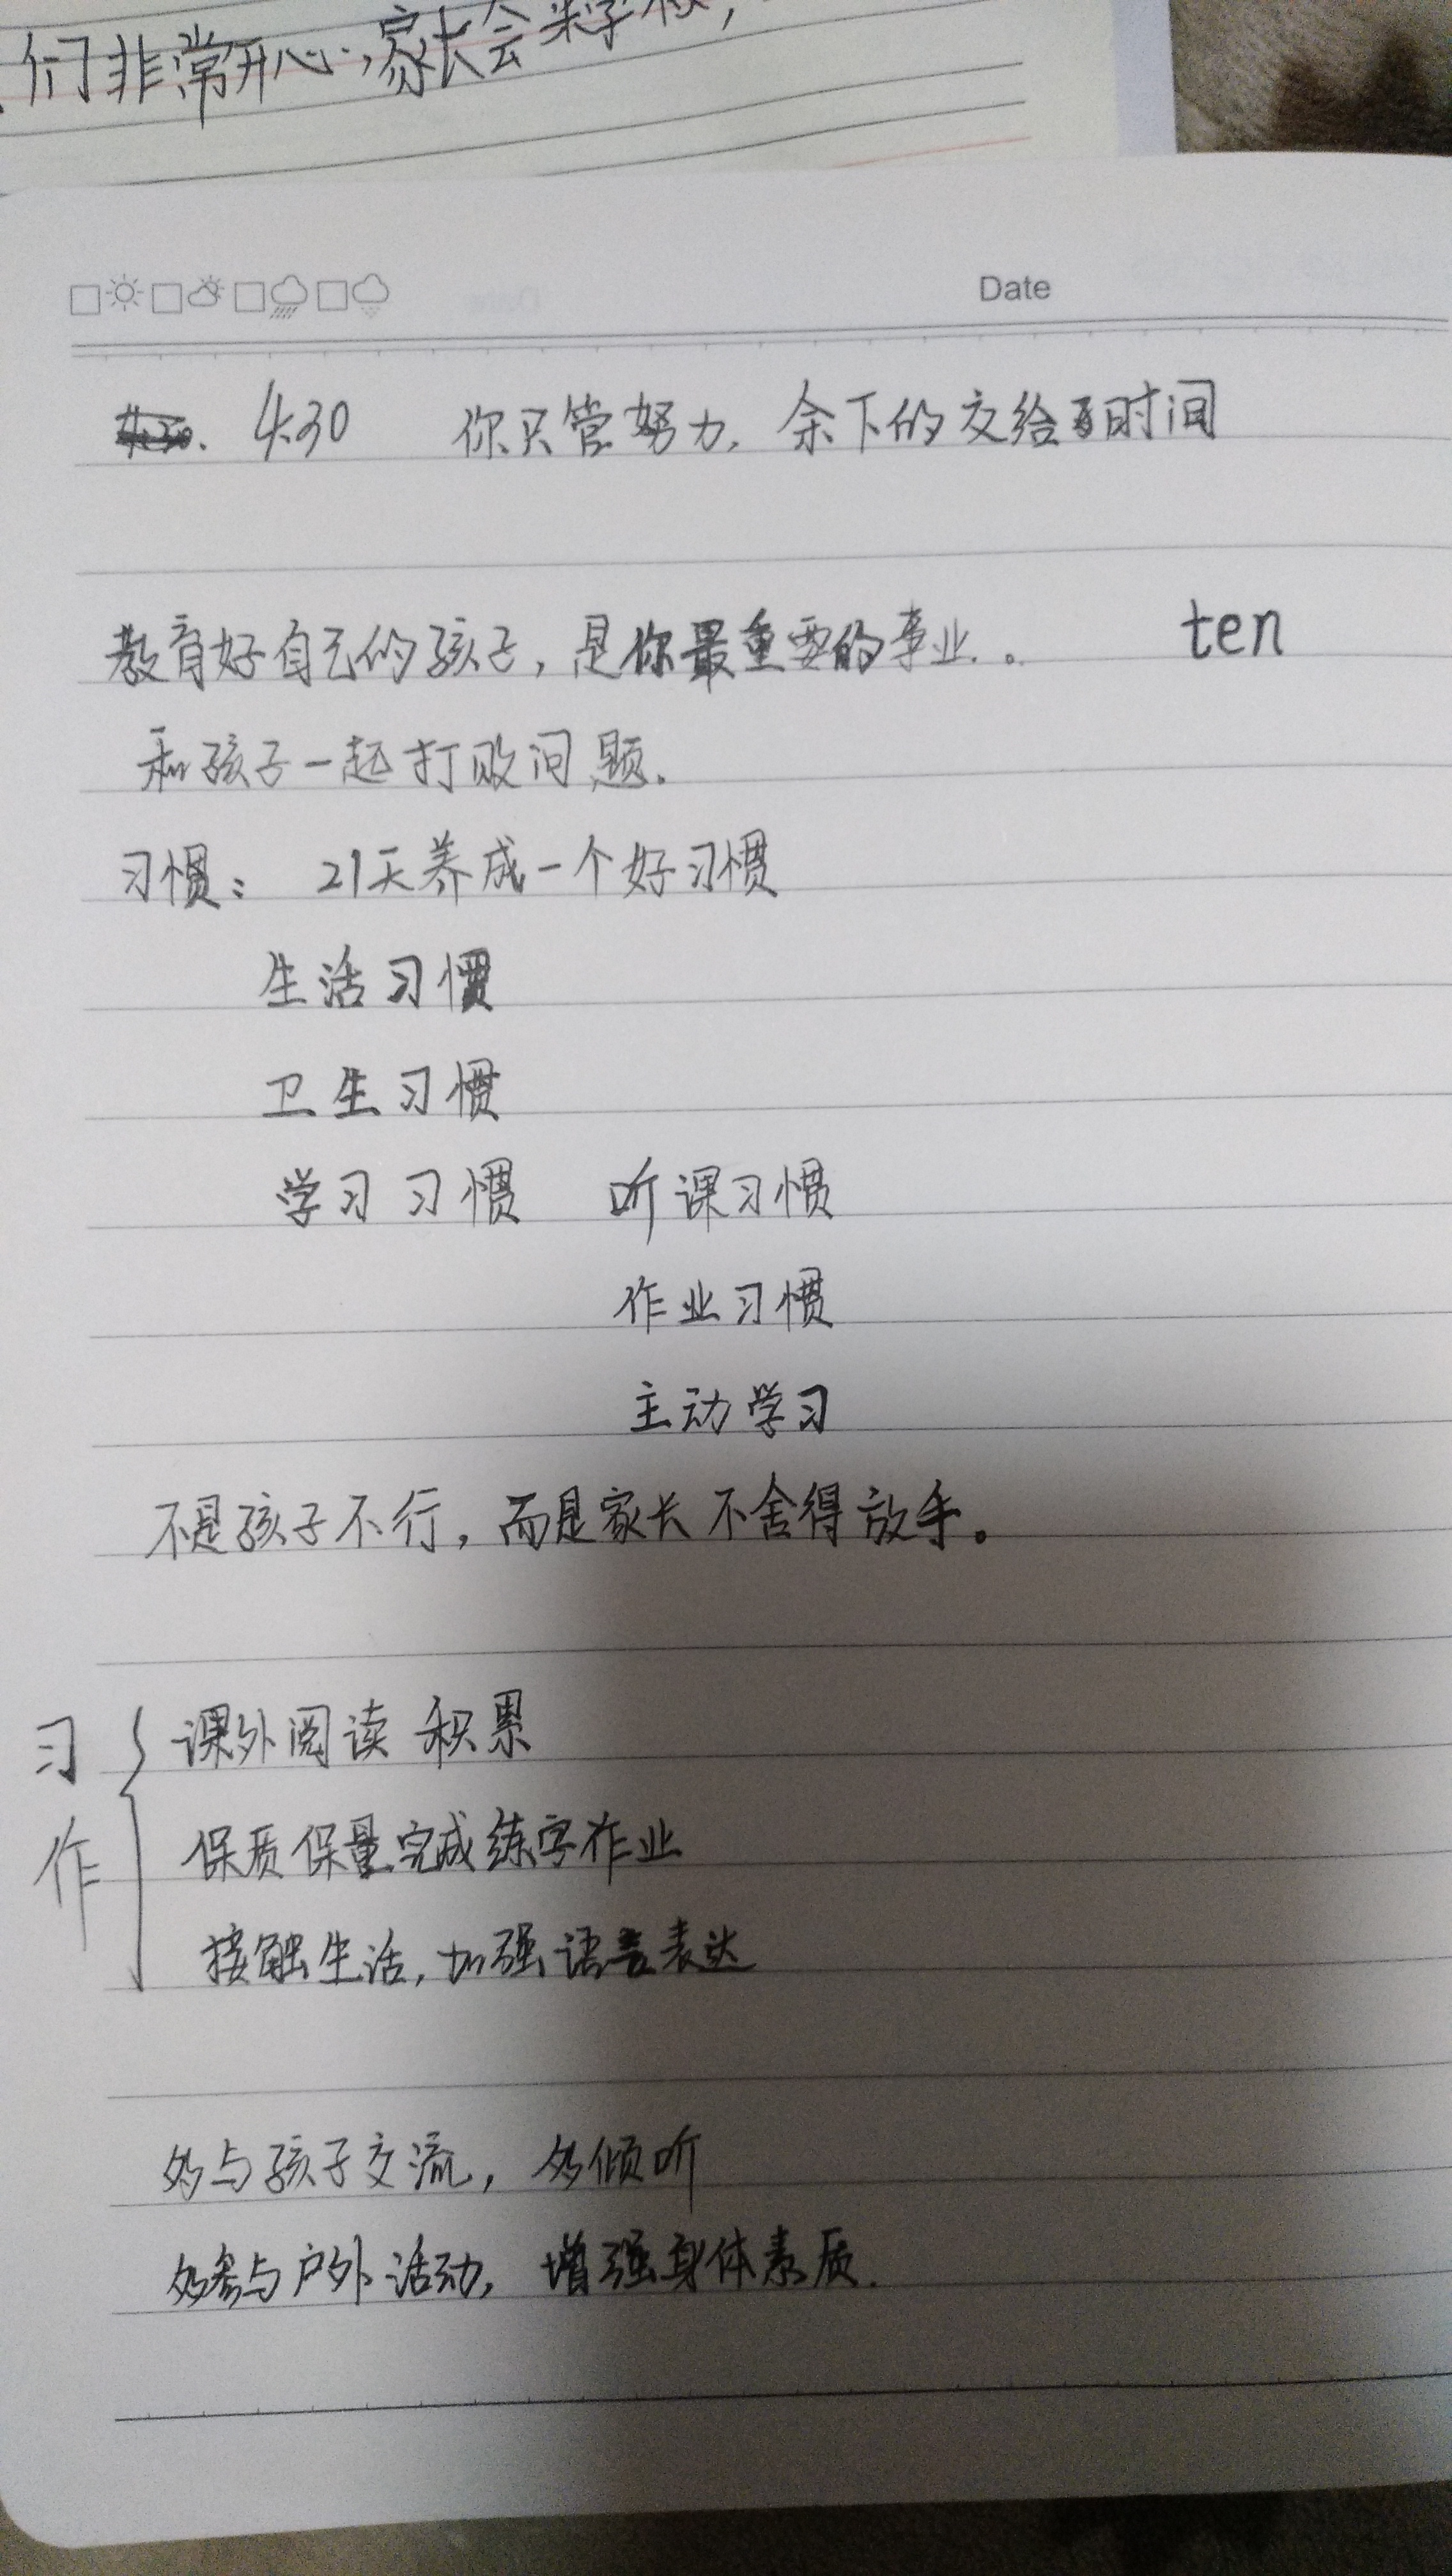 们非常开心,家长会来学校,
Date
4:30 你只管努力,余下的交给时间
教育好自己的孩子,是你最重要的事业。 ten
和孩子一起打败问题.
习惯: 21天养成一个好习惯
生活习惯
卫生习惯
学习习惯 听课习惯
作业习惯
主动学习
不是孩子不行,而是家长不舍得放手。
习作
课外阅读 积累
保质保量完成练字作业
接触生活,加强语言表达
多与孩子交流,多倾听
多参与户外活动,增强身体素质.